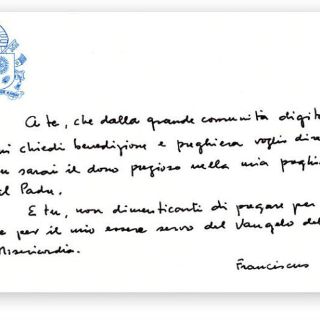 A te, che dalla grande comunità digit
mi chiedi benedizione e preghiera voglio dire
sarai il dono prezioso nella mia preghi
al Padre.
E tu, non dimenticarti di pregare per
e per il mio essere servo del Vangelo del
Misericordia.
Franciscus